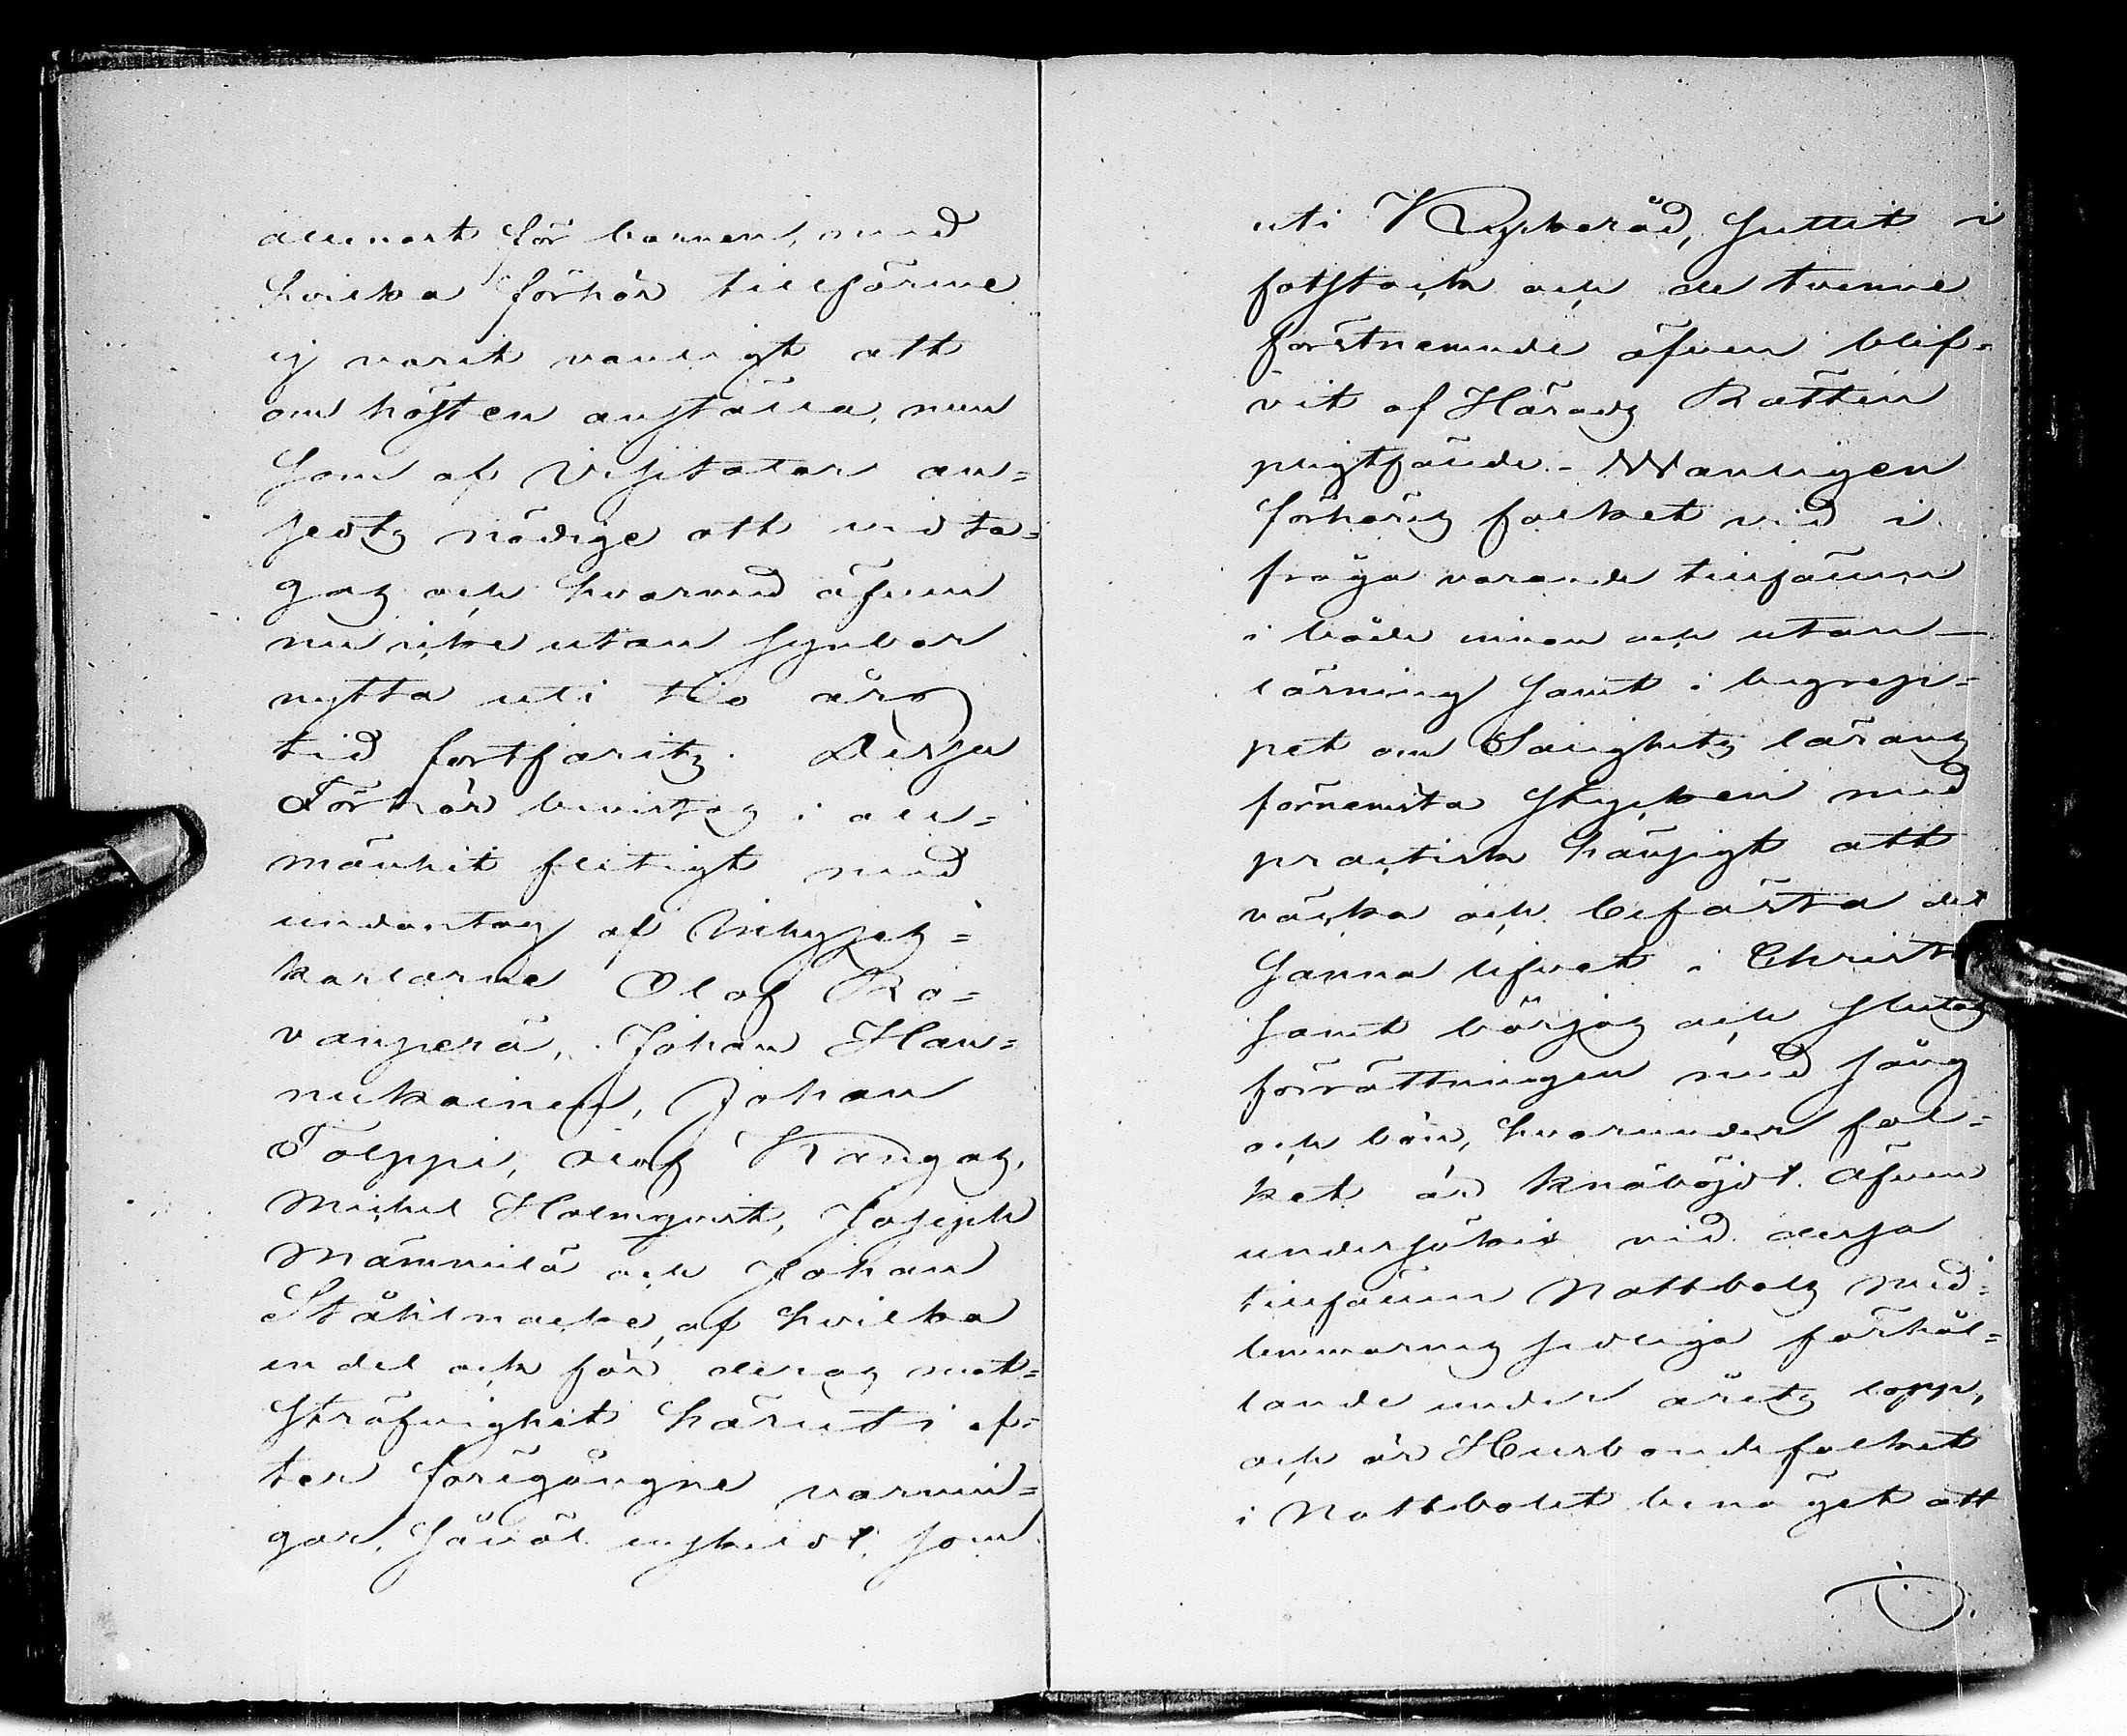 allenast för barnen, med
hvilka förhör tillförne
ej varit vanligt att
om hösten anställa, men
som af Visitator an=
sedts nödige att vidta=
gas och hvarmed äfven
nu icke utan synbar
nytta uti tio års
tid fortfarits. Dessa
Förhör bevistas i all=
mänhet flitigt med
undantag af Inhyses=
karlarne Olof Ro=
vanperä, Johan Han=
nukainen, Johan
Tolppi, Olof Kangas,
Michel Holmqvist, Joseph
Mämmilä och Johan
Ståhlnacke, af hvilka
en del ock för deras mot=
sträfvighet häruti ef=
ter föregångne varnin=
gar, såväl enskildt, som
uti Kyrkoråd, suttit i
fotstock och de tvenne
förstnemnde äfven blif=
vit af Härads Rätten
pligtfälde. - Wanligen
förhöres folket vid i
fråga varande tillfällen
i både innan och utan-
läsning samt i begrep=
pet om Salighets lärans
förnemsta stycken med
practisk hänsigt att
väcka och befästa det
sanna lifvet i Christo
samt börjas och slutas
förrättningen med sång
och bön, hvarunder fol=
ket är knäböjdt. Äfven
undersökes vid dessa
tillfällen Nattbols med=
lemmarnes sedliga förhål=
lande under årets lopp,
och är Husbondefolket
i Nattbolet benäget att